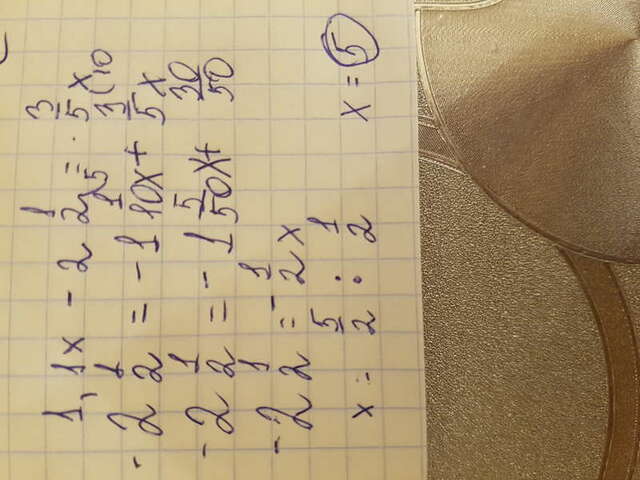 1,1x - 2 1/2 = 3/5 x
-2 1/2 = -1 1/10 x (5 + 3/5 x (10
-2 1/2 = -1 5/50 x + 30/50
-2 1/2 = -1/2 x
x = 5/2 : 1/2 x = 5